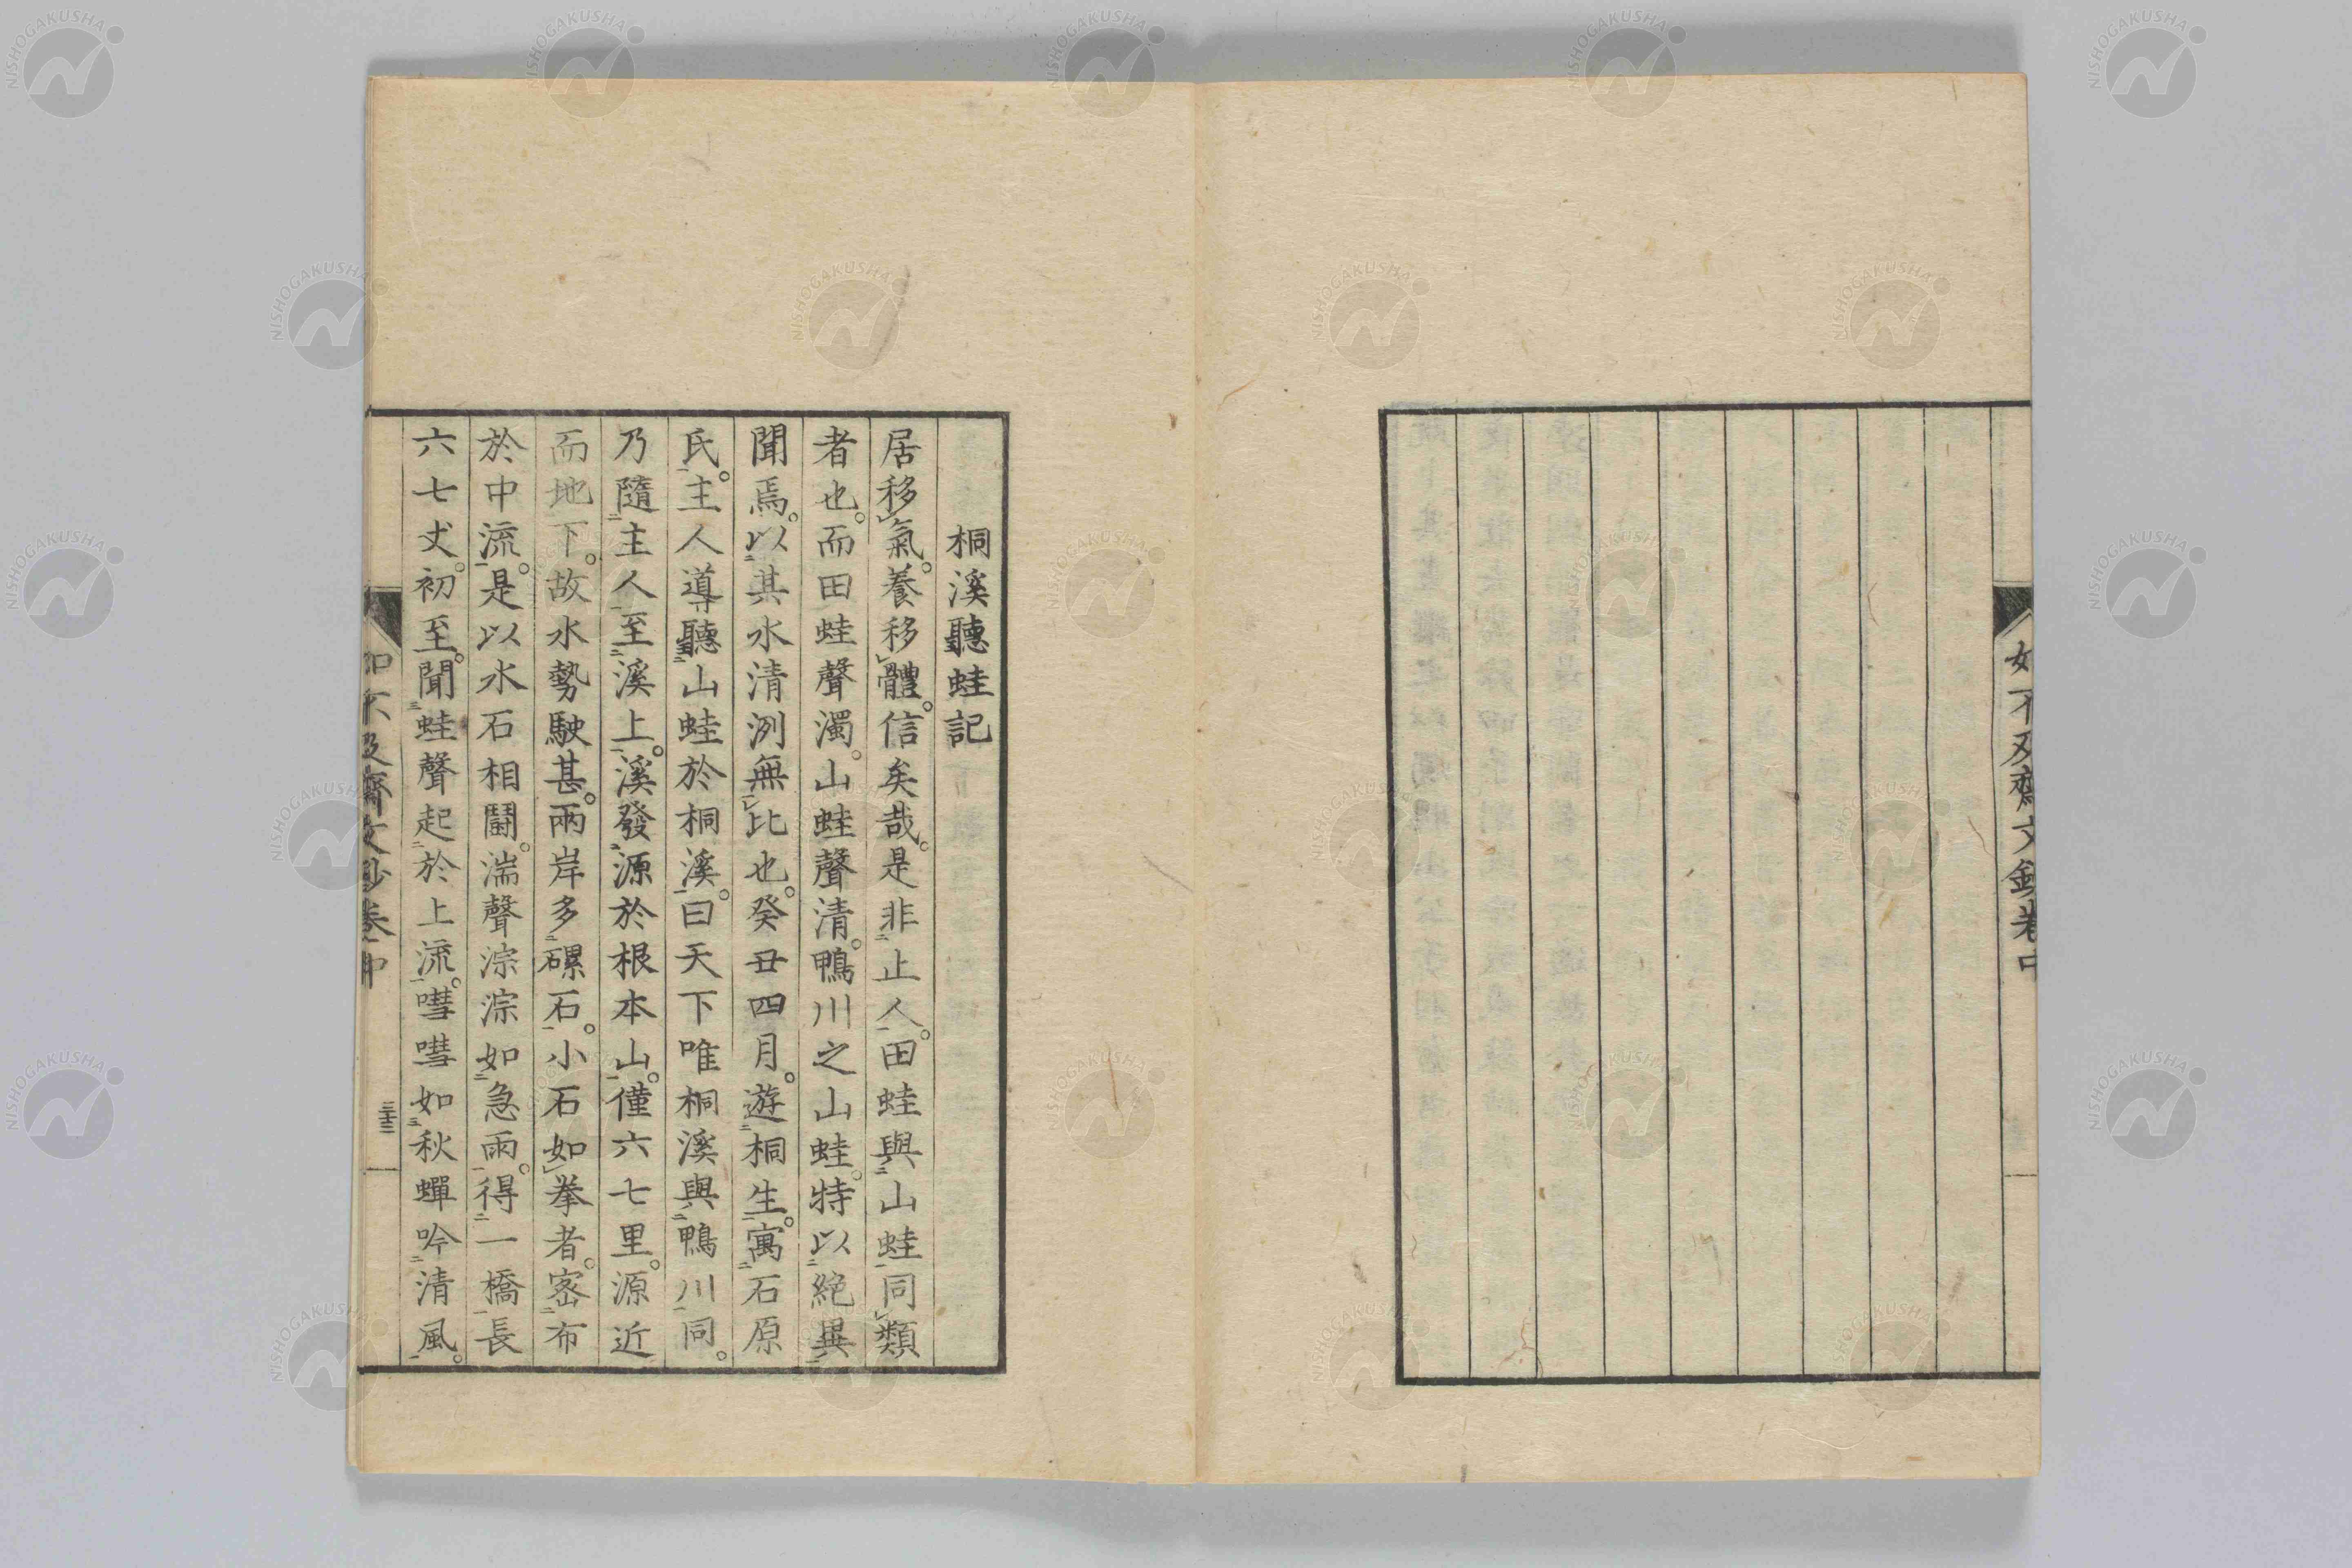 如不及齋文鈔卷中
桐溪聽蛙記
居移氣。養移體。信矣哉。是非止人。田蛙與山蛙同類
者也。而田蛙聲濁。山蛙聲清。鴨川之山蛙。特以絕異
聞焉。以其水清洌無比也。癸丑四月。遊桐生。寓石原
氏。主人導聽山蛙於桐溪。曰天下唯桐溪與鴨川同。
乃隨主人至溪上。溪發源於根本山。僅六七里。源近
而地下。故水勢駛甚。兩岸多磥石。小石如拳者。密布
於中流。是以水石相鬪。湍聲淙淙如急雨。得一橋長
六七丈。初至。聞蛙聲起於上流。嘒嘒如秋蟬吟清風。
如不及齋文鈔卷中
NISHOGAKUSHA